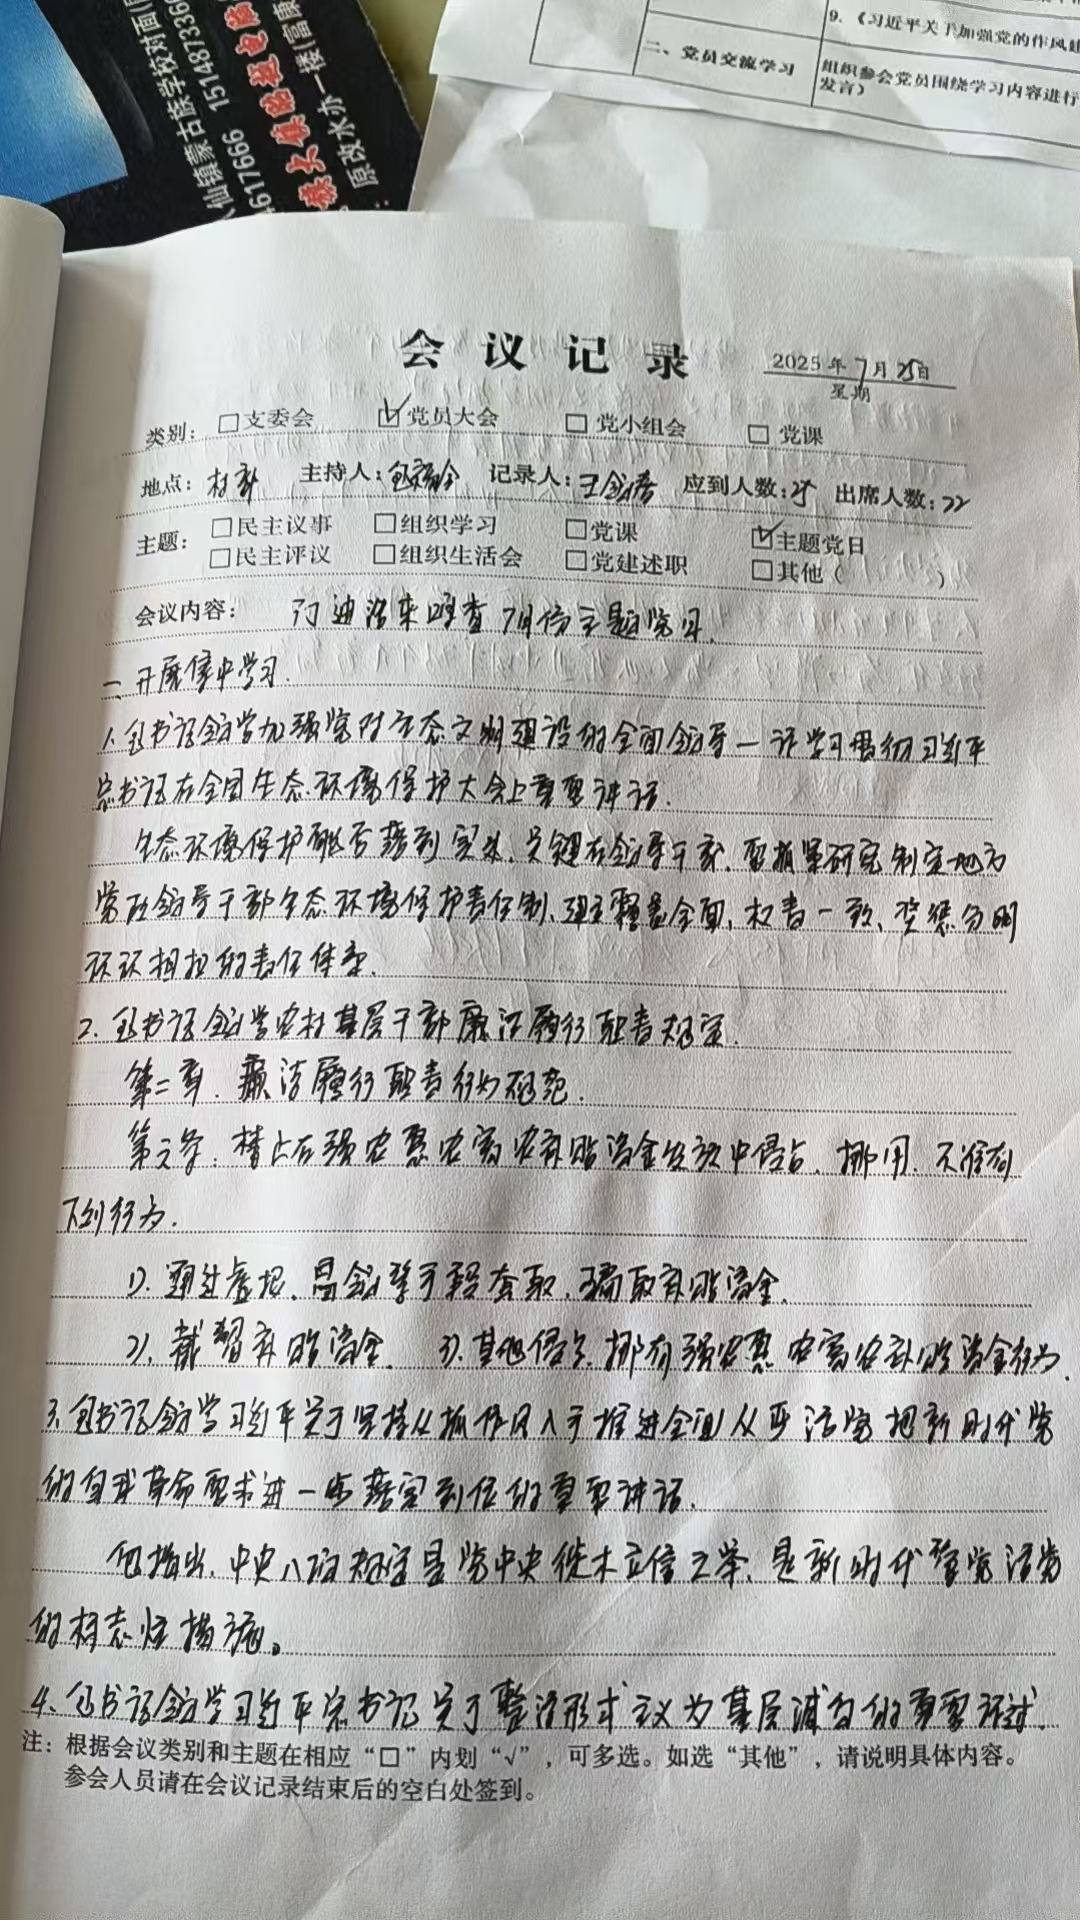 9.《习近平关于加强党的作风建
二、党员交流学习
组织参会党员围绕学习内容进行
发言）
仙镇蒙古族学校对面(
617666 15148733
原改水办一楼(富康
会议记录
2025年7月25日
星期
类别： □支委会 ☑党员大会 □党小组会 □党课
地点：村部 主持人： 记录人： 应到人数： 出席人数：22
主题： □民主议事 □组织学习 □党课 ☑主题党日
□民主评议 □组织生活会 □党建述职 □其他（ ）
会议内容： 7月份主题党日.
一、开展集中学习.
1.包书记领学加强党对生态文明建设的全面领导—许学习贯彻习近平
总书记在全国生态环境保护大会上重要讲话.
生态环境保护能否落到实处、关键在领导干部、要抓紧研究制定地方
党政领导干部生态环境保护责任制、建立覆盖全面、权责一致、奖惩分明
环环相扣的责任体系.
2.包书记领学农村基层干部廉洁履行职责规定.
第二章.廉洁履行职责行为规范.
禁止在强农惠农富农补贴资金发放中侵占、挪用.不准有
下列行为.
1).通过虚报、冒领等手段套取、骗取补贴资金.
2).截留补贴资金. 3).其他侵占、挪有强农惠农富农补贴资金行为.
3.包书记领学习近平关于坚持从抓作风入手推进全面从严治党把新时代党
的自我革命要求进一步落实到位的重要讲话.
他指出.中央八项规定是党中央徙木立信之举、是新时代管党治党
的标志性措施。
4、包书记领学习近平总书记关于整治形式主义为基层减负的重要论述.
注：根据会议类别和主题在相应“□”内划“√”，可多选。如选“其他”，请说明具体内容。
参会人员请在会议记录结束后的空白处签到。